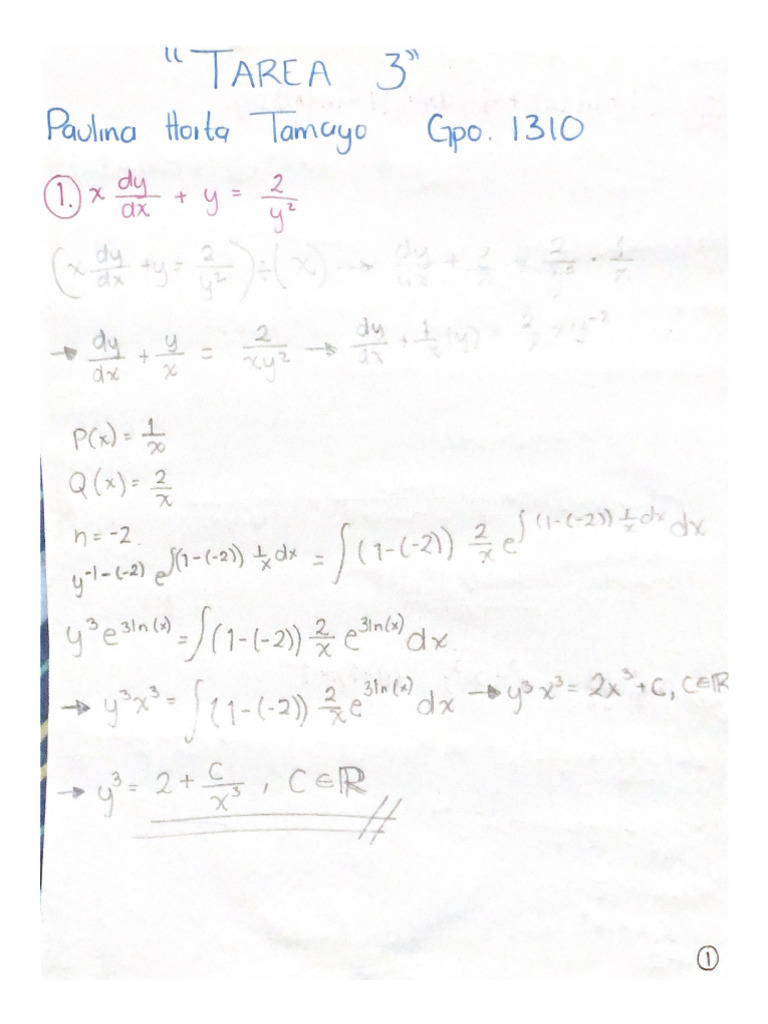 "TAREA 3"
Paulina Horta Tamayo Gpo. 1310
1. x dy/dx + y = 2/y²
(x dy/dx + y = 2/y²) ÷ (x) → dy/dx + y/x = 2/y² · 1/x
→ dy/dx + y/x = 2/xy² → dy/dx + 1/x (y) = 2/x * y⁻²
P(x) = 1/x
Q(x) = 2/x
n = -2.
y^(-1-(-2)) e^(∫(1-(-2)) 1/x dx) = ∫(1-(-2)) 2/x e^(∫(1-(-2)) 1/x dx) dx
y³e^(3ln(x)) = ∫(1-(-2)) 2/x e^(3ln(x)) dx
→ y³x³ = ∫(1-(-2)) 2/x e^(3ln(x)) dx → y³x³ = 2x³ + C, C∈ℝ
→ y³ = 2 + C/x³, C∈ℝ
1